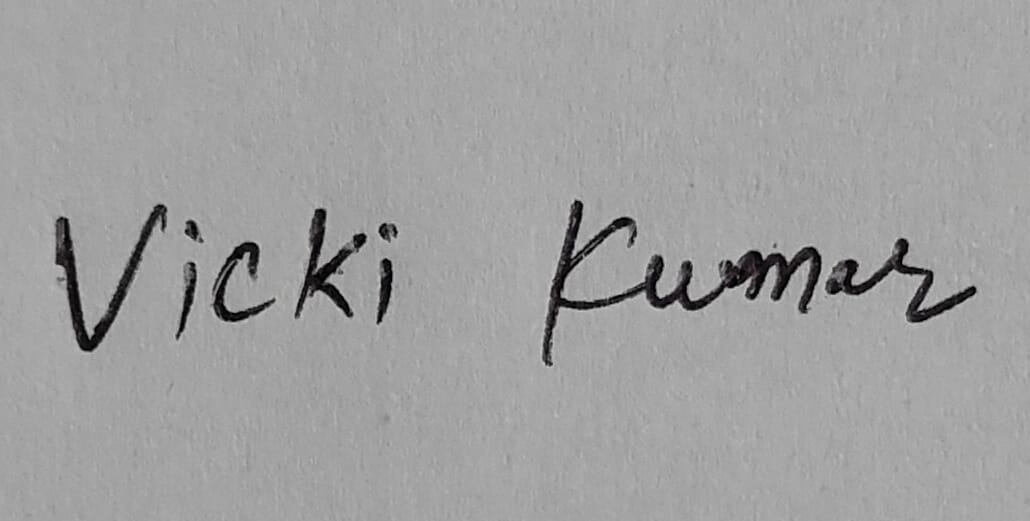 Vicki Kumar